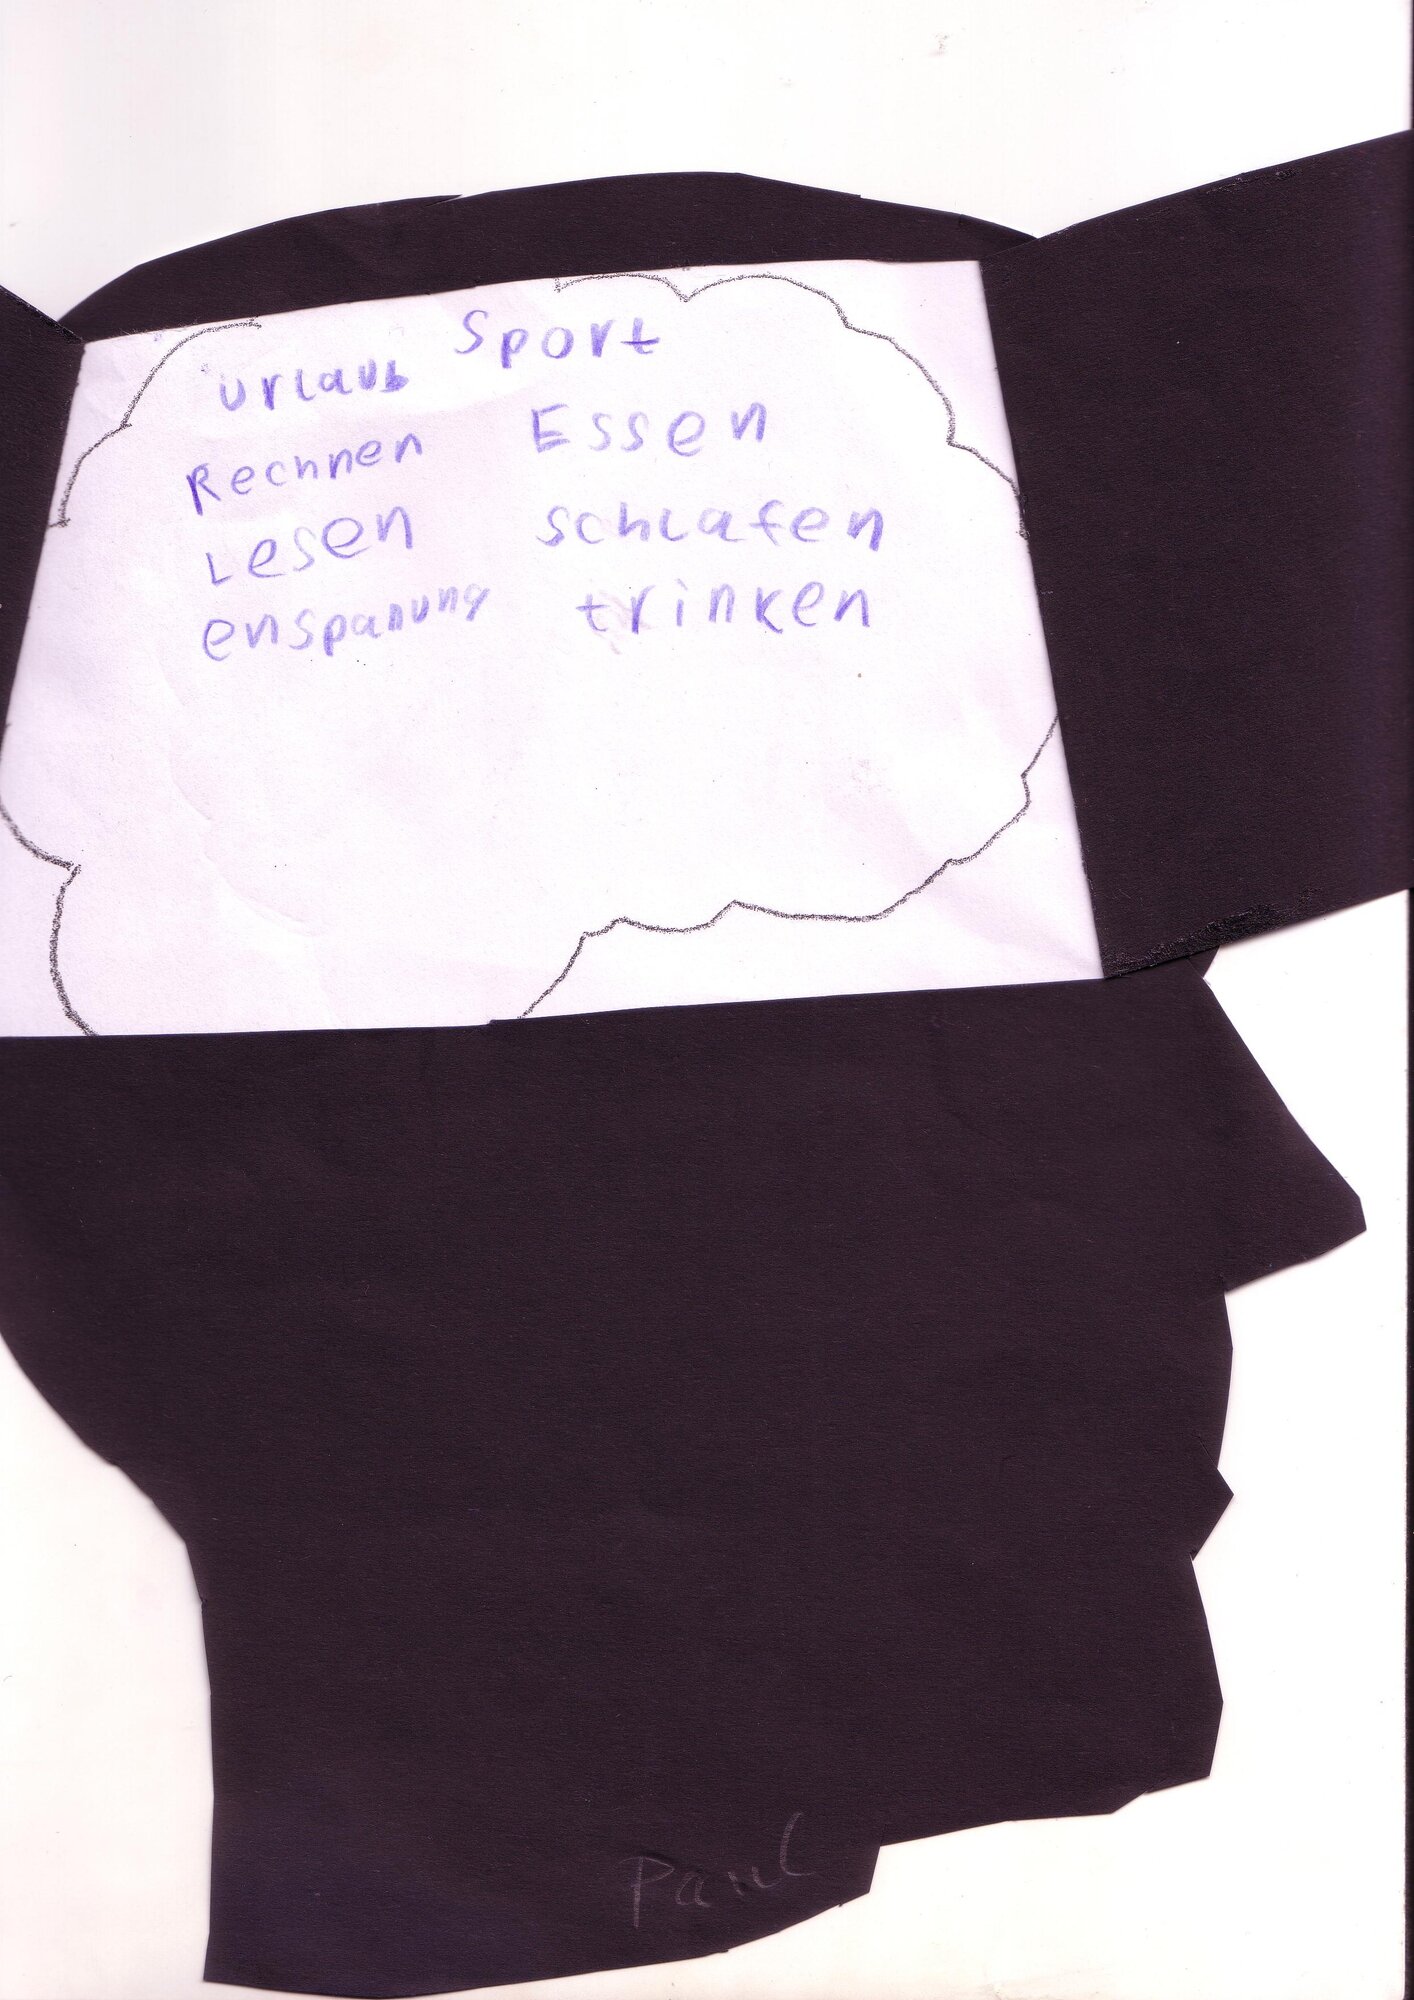 Sport
urlaub
Rechnen Essen
Lesen schlafen
enspanung trinken
Paul